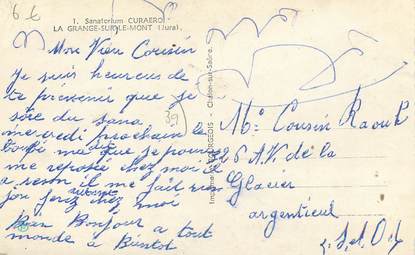 6 L
1. Sanatorium CURAERO
LA GRANGE-SUR-LE-MONT (Jura)
Mon Vieu Cousin
Je suis heureus de
te prévenir que je
sore du sana
mercredi prochain le
que je pourai
me reposée chez moi
a seson il me fait rien
autant
jon ferez chez moi
Bien Bonjour a tout
monde a Bientot
39
Imp BOURGEOIS - Chalon-sur-Saône
Mr Cousin Raoul
26 A.V. de la
Glacier
argenteuil
S.et.O.